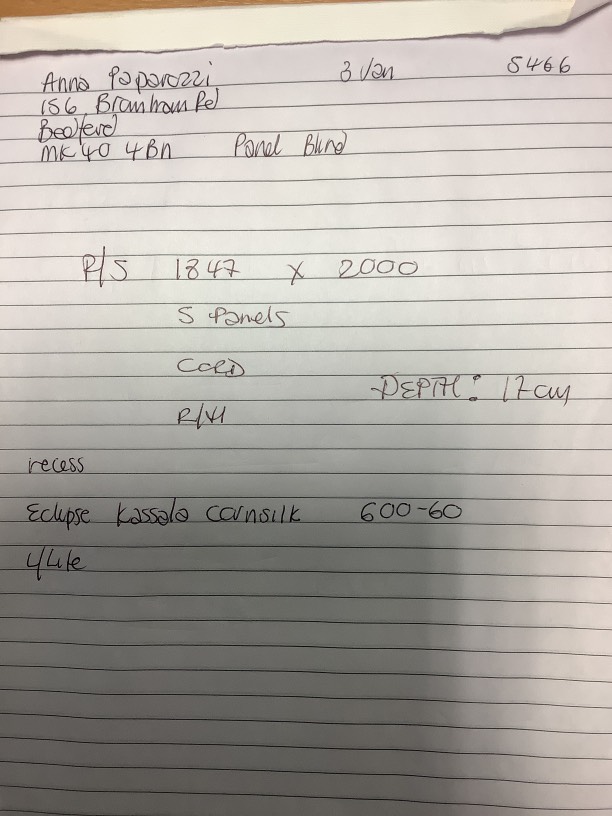 Anna Paparozzi 3 Jan 5466
156 Bramham Rd
Bedford
MK40 4BN Panel Blind
R/S 1847 x 2000
5 Panels
CORD
DEPTH: 17cm
R/H
recess
Eclipse Kassala cornsilk 600-60